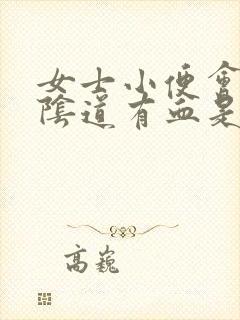 女士小便會
陰道有血是
高巍